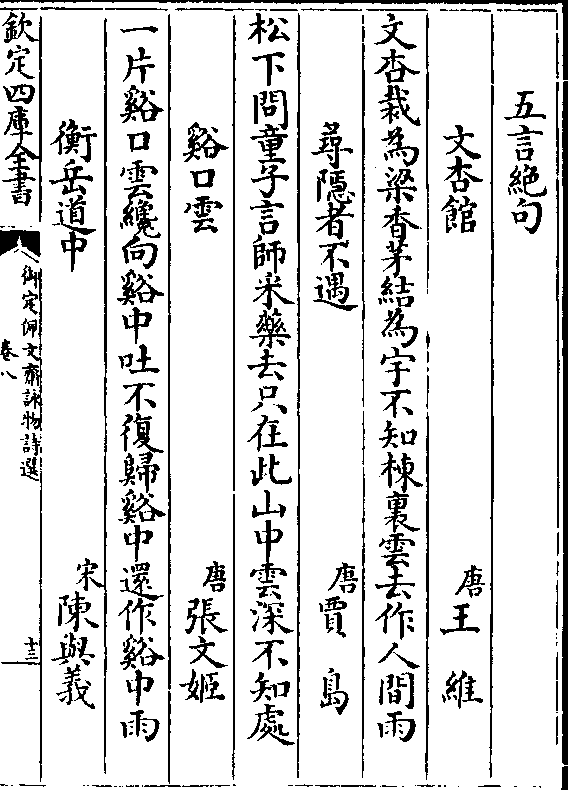 五言絶句
文杏館　唐王維
文杏栽為梁香茅結為宇不知棟裏雲去作人間雨
尋隱者不遇　唐賈島
松下問童子言師采藥去只在此山中雲深不知處
谿口雲　唐張文姬
一片谿口雲纔向谿中吐不復歸谿中還作谿中雨
衡岳道中　宋陳與義
欽定四庫全書
御定佩文齋詠物詩選
卷八
十三